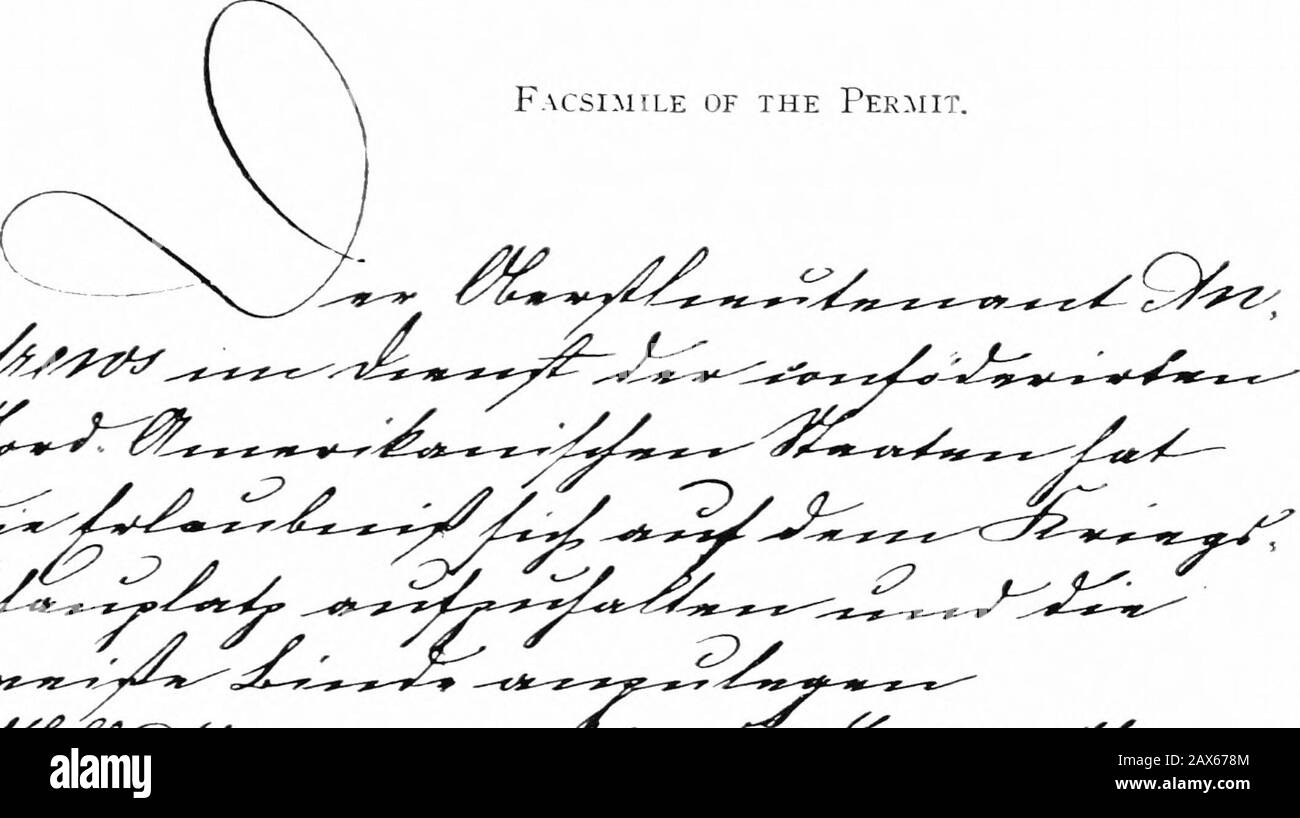 FACSIMILE OF THE PERMIT.
Der Oberstlieutenant An-
drews im Dienst der conföderirten
Nord-Amerikanischen Staaten hat
die Erlaubniß sich auf dem Kriegs-
schauplatz aufzuhalten und die
weiße Binde anzulegen
alamy
Image ID: 2AX678M
www.alamy.com